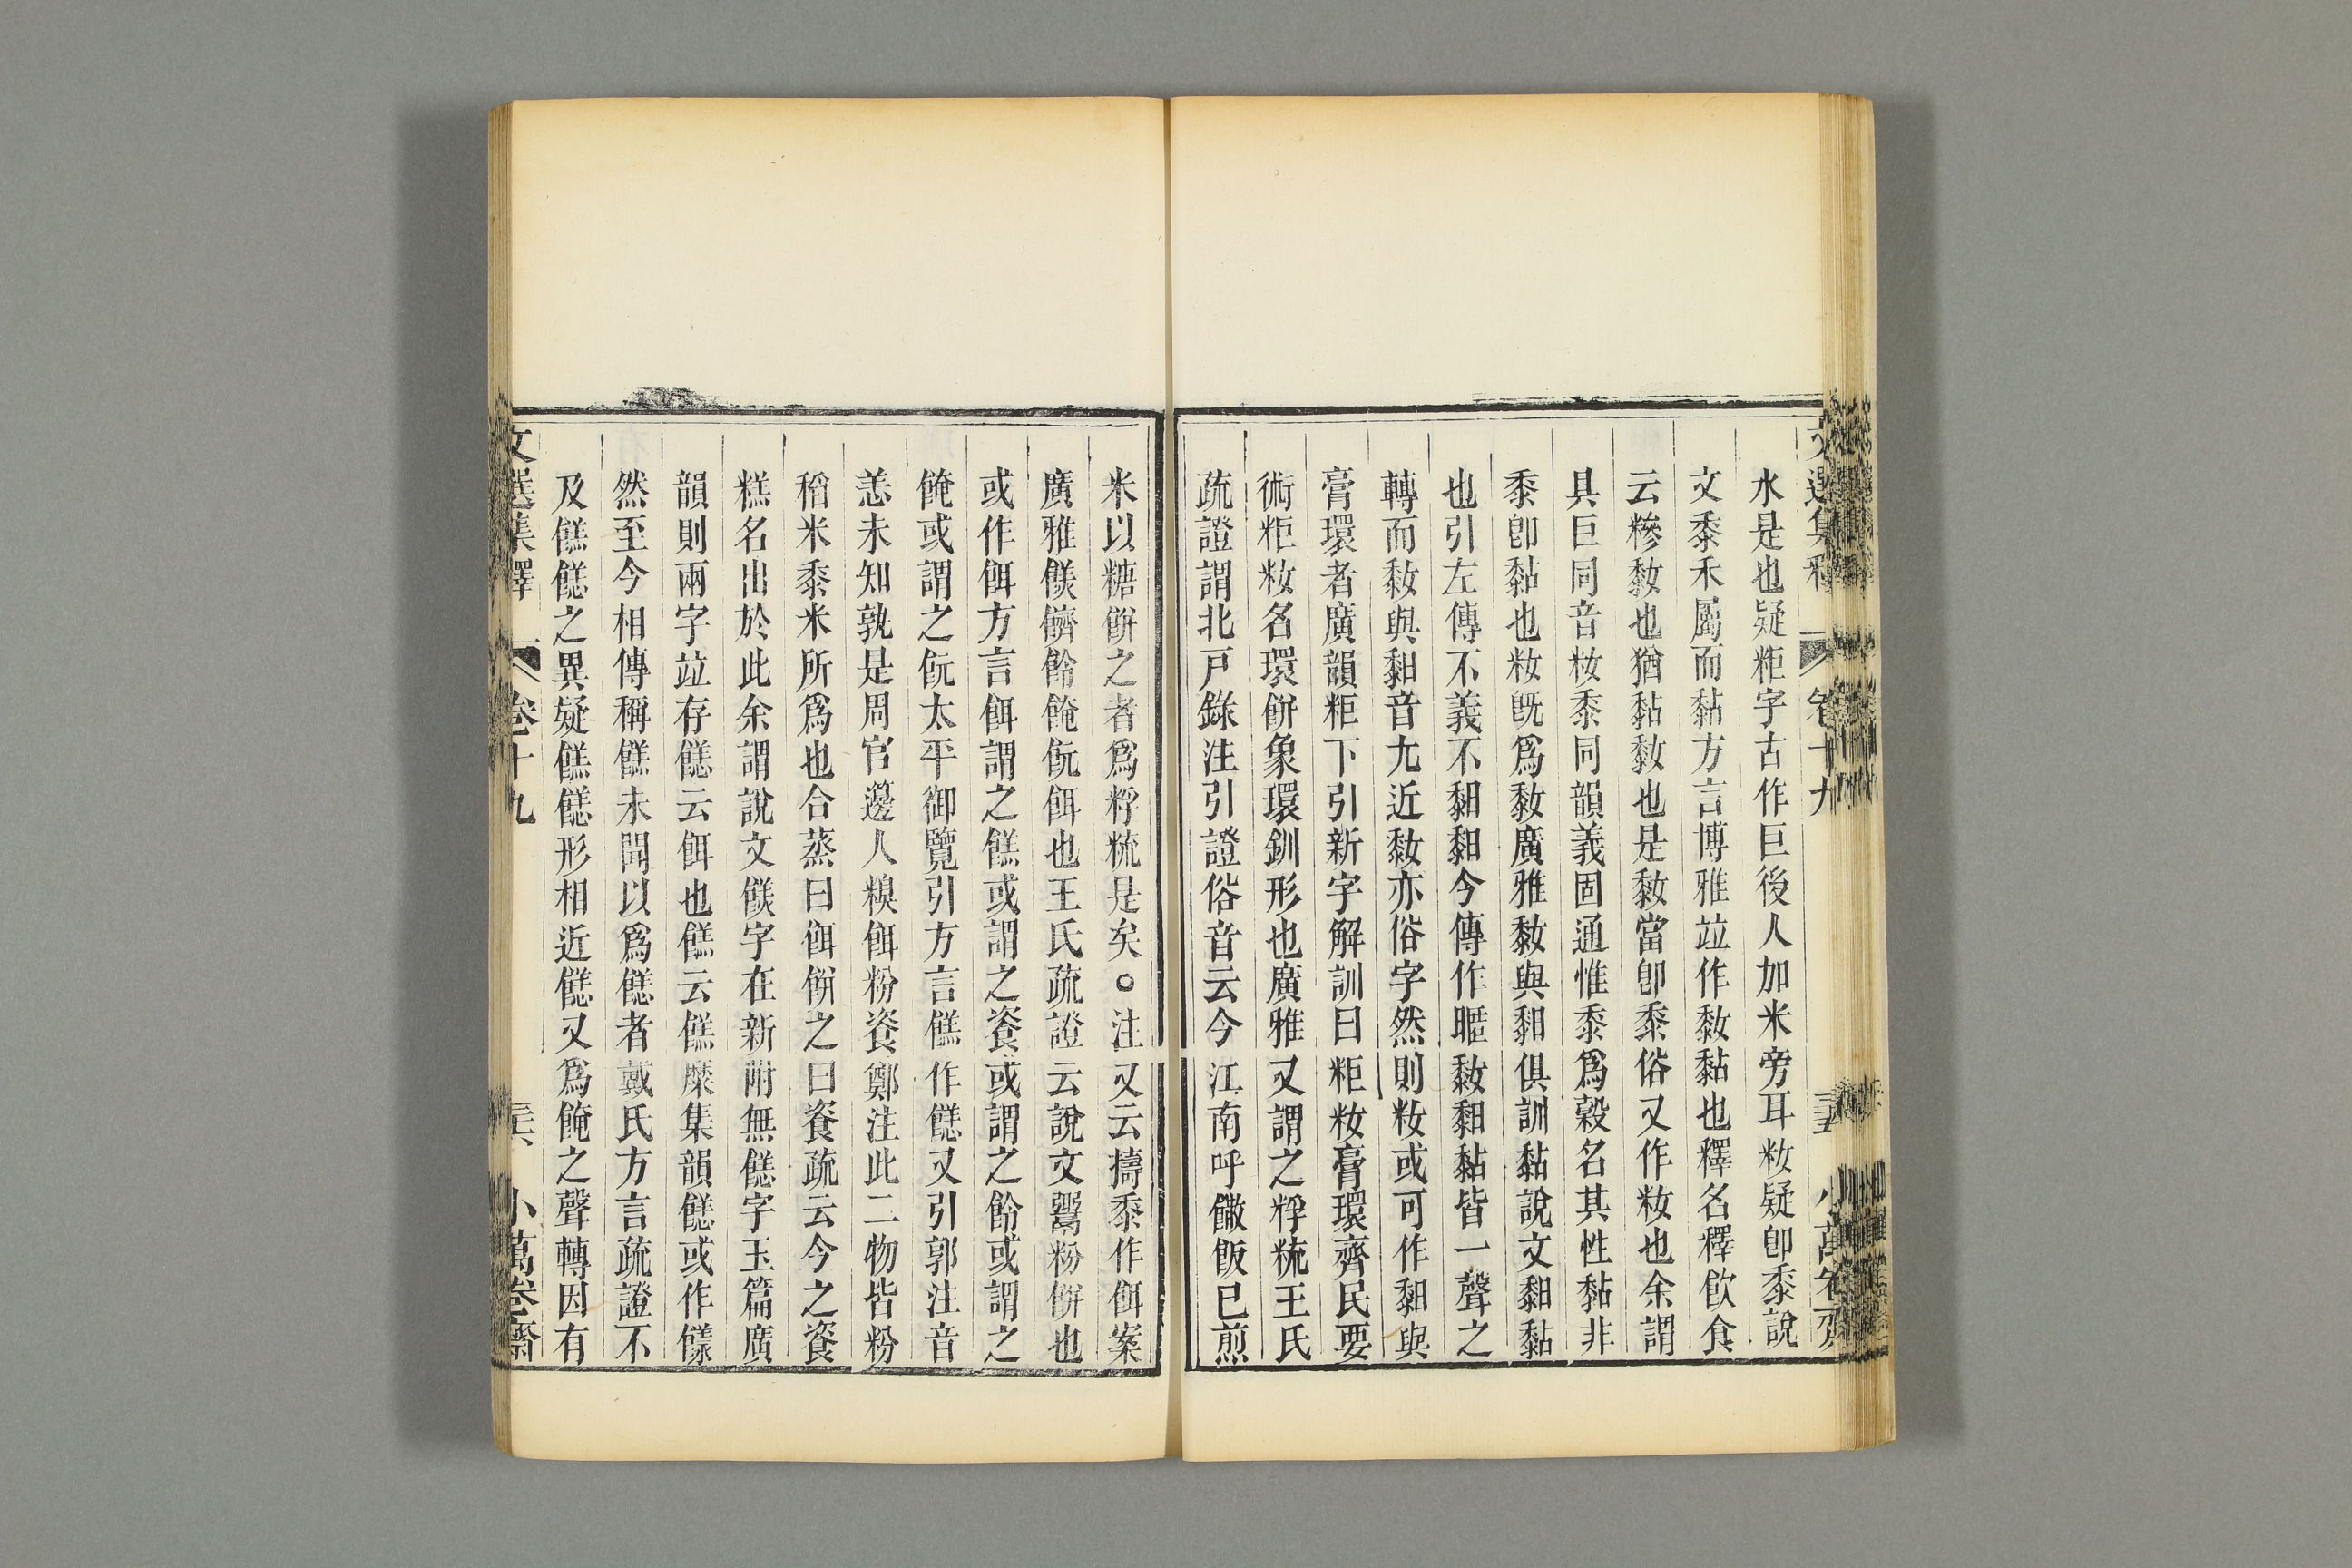 水是也疑粔字古作巨後人加米旁耳敉疑卽黍說
文黍禾屬而黏方言博雅竝作䵑黏也釋名釋飮食
云糝䵑也猶黏䵑也是䵑當卽黍俗又作籹也余謂
具巨同音籹黍同韻義固通惟黍爲穀名其性黏非
黍卽黏也籹旣爲䵑廣雅䵑與䵒俱訓黏說文䵒黏
也引左傳不義不䵒䵒今傳作暱䵑䵒黏皆一聲之
轉而䵑與䵒音尢近䵑亦俗字然則籹或可作䵒與
膏環者廣韻粔下引新字解訓曰粔籹膏環齊民要
術粔籹名環餅象環釧形也廣雅又謂之粰䊗王氏
疏證謂北戸錄注引證俗音云今江南呼饊飯已煎
米以糖餅之者爲粰䊗是矣○注又云擣黍作餌案
廣雅䬾䭣䬧餣䬧餌也王氏疏證云說文鬻粉餅也
或作餌方言餌謂之餻或謂之餈或謂之䬧或謂之
餣或謂之䬧太平御覽引方言餻作䭆又引郭注音
恙未知孰是周官籩人糗餌粉餈鄭注此二物皆粉
稻米黍米所爲也合蒸曰餌餅之曰餈疏云今之餈
糕名出於此余謂說文餻字在新附無䭆字玉篇廣
韻則兩字竝存䭆云餌也餻云餻糜集韻䭆或作䭥
然至今相傳稱餻未聞以爲䭆者戴氏方言疏證不
及餻䭆之異疑餻䭆形相近䭆又爲餣之聲轉因有
文選集釋 卷十九 小萬卷齋